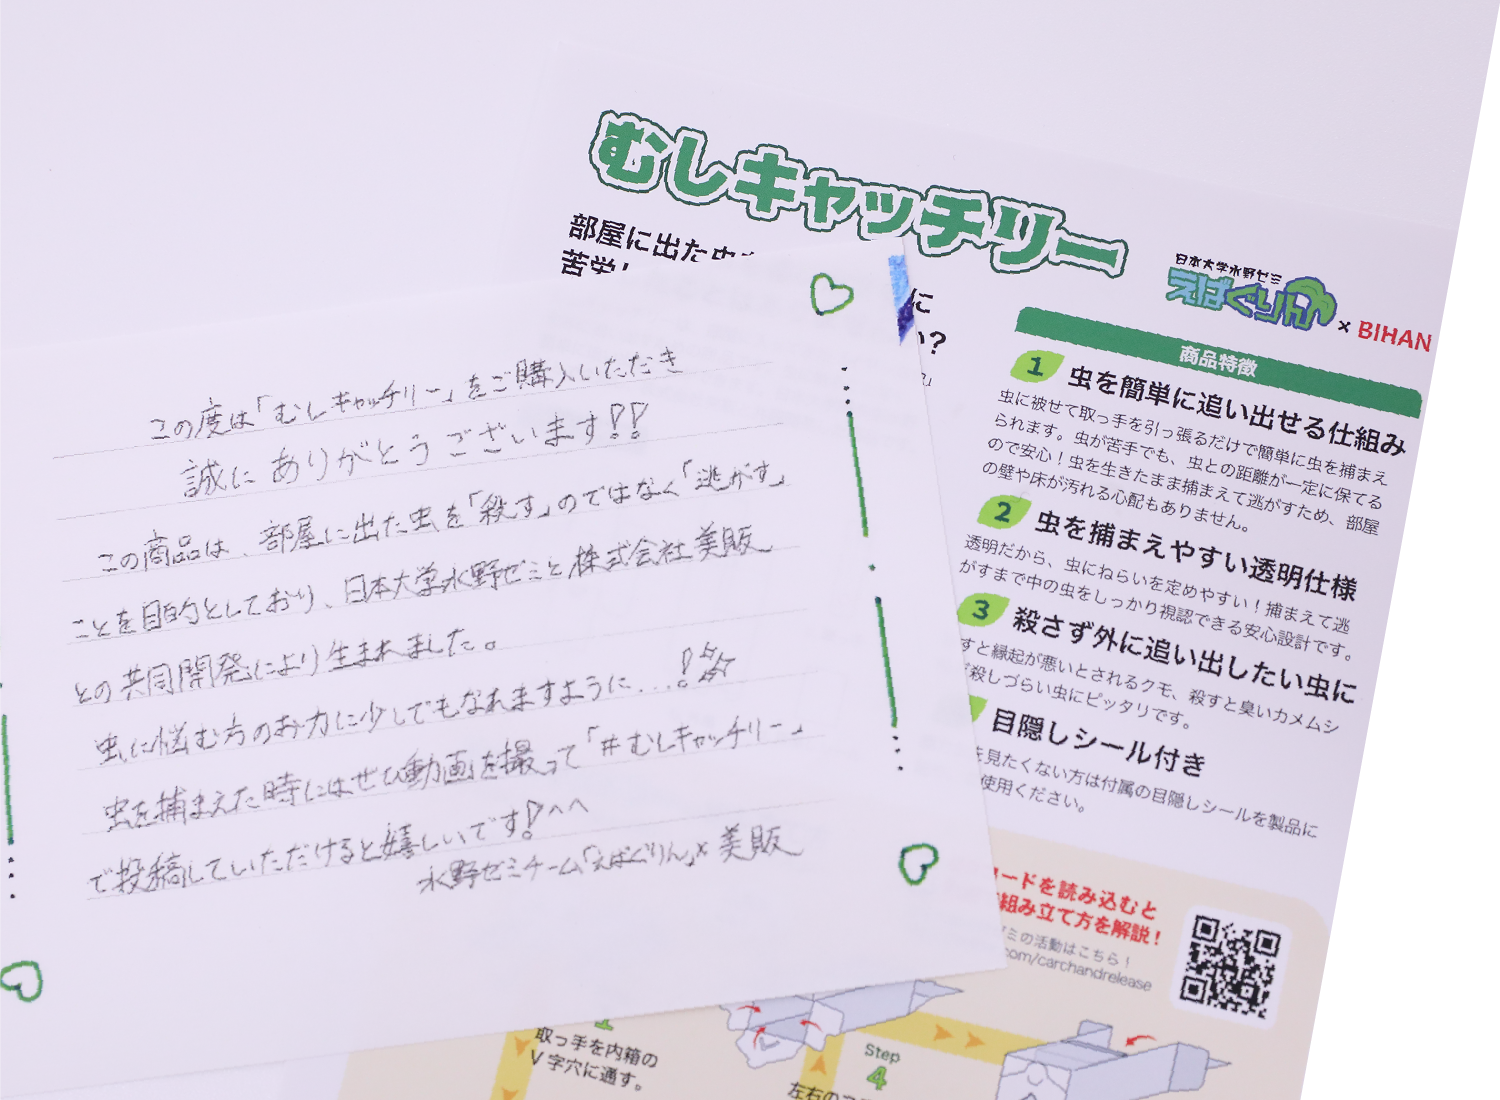 むしキャッチリー
部屋に出た虫
苦労
に
い?
日本大学水野ゼミ
えばぐりん × BIHAN
商品特徴
1 虫を簡単に追い出せる仕組み
虫に被せて取っ手を引っ張るだけで簡単に虫を捕まえ
られます。虫が苦手でも、虫との距離が一定に保てる
ので安心!虫を生きたまま捕まえて逃がすため、部屋
の壁や床が汚れる心配もありません。
2 虫を捕まえやすい透明仕様
透明だから、虫にねらいを定めやすい!捕まえて逃
がすまで中の虫をしっかり視認できる安心設計です。
3 殺さず外に追い出したい虫に
すと縁起が悪いとされるクモ、殺すと臭いカメムシ
ど殺しづらい虫にピッタリです。
目隠しシール付き
を見たくない方は付属の目隠しシールを製品に
使用ください。
コードを読み込むと
組み立て方を解説!
ゼミの活動はこちら!
.com/carchandrelease
1
取っ手を内箱の
V字穴に通す。
Step
4
左右の
この度は「むしキャッチリー」をご購入いただき
誠にありがとうございます!!
この商品は、部屋に出た虫を「殺す」のではなく「逃がす」
ことを目的としており、日本大学水野ゼミと株式会社美販
との共同開発により生まれました。
虫に悩む方のお力に少しでもなれますように...!
虫を捕まえた時にはぜひ動画を撮って「#むしキャッチリー」
で投稿していただけると嬉しいです!^^
水野ゼミチーム「えばぐりん」× 美販